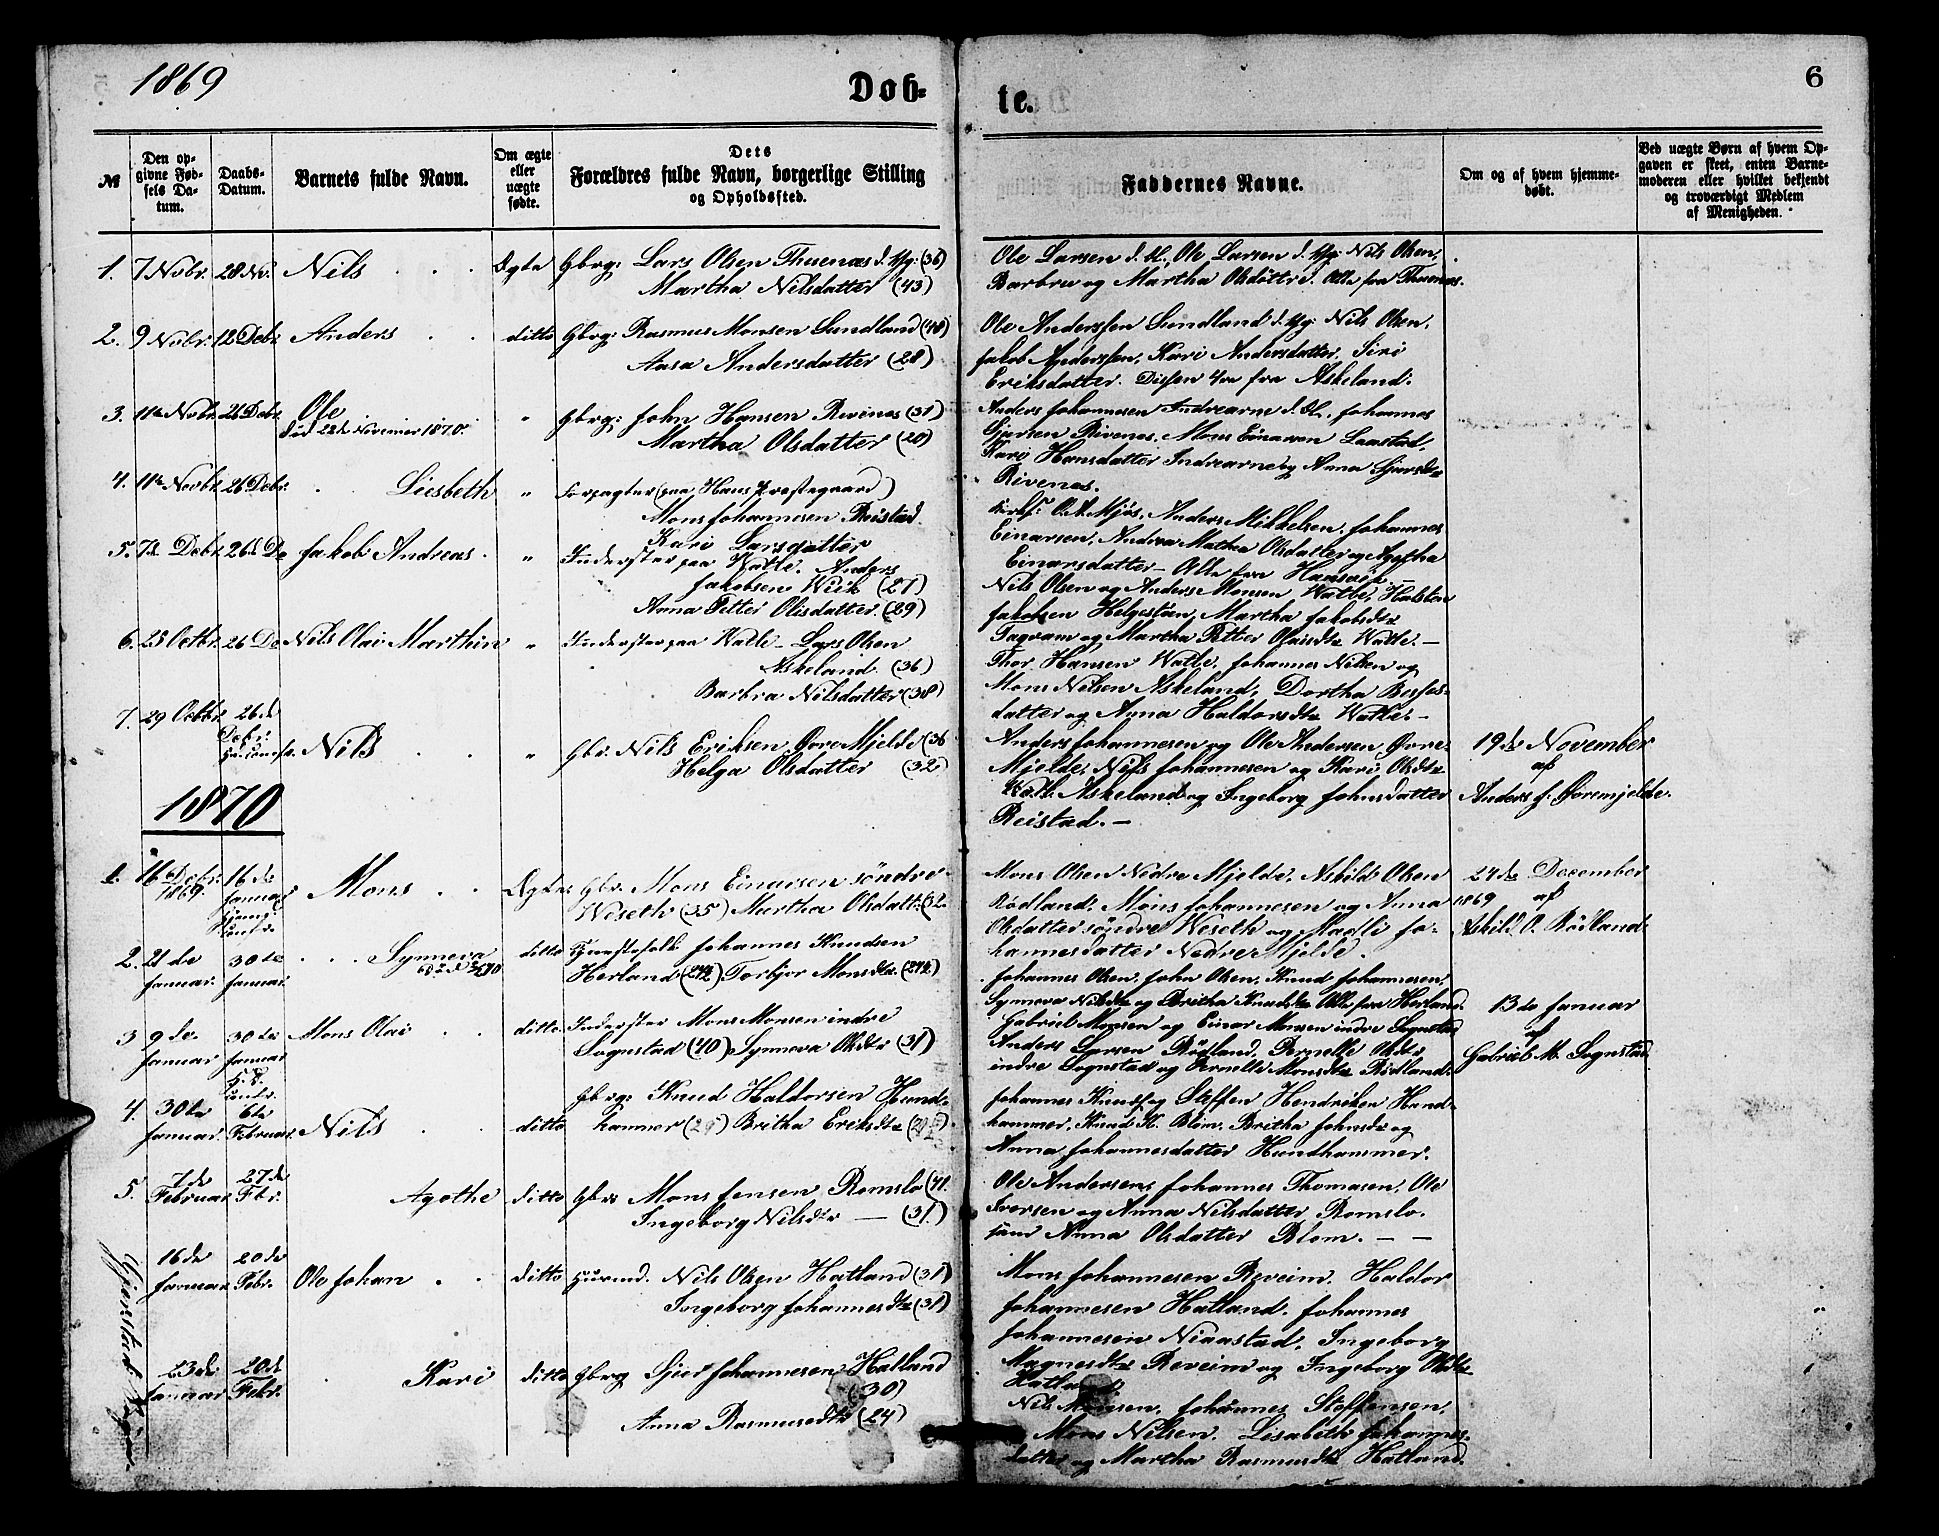 1869
Døb-
te.
6
№
Den op-
givne Fød-
sels Da-
tum.
Daabs-
Datum.
Barnets fulde Navn.
Om ægte
eller
uægte
fødte.
Dets
Forældres fulde Navn, borgerlige Stilling
og Opholdssted.
Faddernes Navne.
Om og af hvem hjemme-
døbt.
Ved uægte Børn af hvem Op-
gaven er skeet, enten Barne-
moderen eller hvilket bekjendt
og troværdigt Medlem
af Menigheden.
1. 7 Novbr. 28 No. Nils Ægte Gbrg: Lars Olsen Thunæs d. Yg: (36)
Martha Nilsdatter (43)
Ole Larsen d. Æl., Ole Larsen d. Yg: Nils Olsen,
Barbru og Martha Olsdøttre. Alle fra Thunæs.
2. 9 Novbr. 12 Debr. Anders ditto Gbrg: Rasmus Monsen Sundland (48)
Aasa Andersdatter (28)
Ole Anderssen Sundland d. Yg: Nils Olsen,
Jakob Anderssen, Kari Andersdatter, Siri
Eriksdatter. Disse 4re fra Askeland.
3. 11te Novbr. 26 Debr. Ole " Gbrg: John Hansen Rivenes (31)
død 22de November 1870.
Martha Olsdatter (20)
Anders Johannesen Indrearne d. Æl., Johannes
Sjursen Rivenes, Mons Einarsen Laastad,
Kari Hansdatter Indrearne og Anna Sjursdtr
Rivenes.
4. 11te Novbr. 26 Debr. Lisbeth " Forpagter (paa Haus Præstegaard)
Mons Johannesen Reistad
Kari Larsdatter
Kirkes. O. A. Mjøs, Anders Mikkelsen, Johannes
Einarsen, Andrea Mathea Olsdatter og Agatha
Einarsdatter – Alle fra Hamsvig.
5. 7de Debr. 26de De Jakob Andreas " Inderster paa Watle. Anders
Jakobsen Wiik (27)
Anna Petter Olisdatter. (29)
Nils Olsen og Anders Monsen Watle, Halsten
Jakobsen Helgestun, Martha Jakobsdtr
Fagvam og Martha Petter Olaisdtr Watle. –
6. 25 Octbr. 26 De Nils Olai Marthin " Inderster paa Watle – Lars Olsen
Askeland. (36)
Barbra Nilsdatter (38)
Thor Hansen Watle, Johannes Nilsen og
Mons Nilsen Askeland, Dortha
datter og Anna Haldorsdtr Watle. –
7. 29 Octbr. 26de
Debr.
Nils " Gbr. Nils Eriksen Øvre Mjelde (36
Helga Olsdatter (32)
Anders Johannesen og Ole Andersen Øvre-
Mjelde, Nils Johannesen og Kari Olsdtr
Askeland og Ingeborg Johnsdatter
Reistad. –
19de November
af
Anders J. Øvremjelde.
1870
1. 16 Debr. 1869. 16de
Januar Mons Ægte Gbr. Mons Einarsen søndre
Weseth (35) Martha Olsdatt. (32
Mons Olsen Nedre Mjelde, Askild Olsen
Rødland, Mons Johannesen og Anna
Olsdatter søndre Weseth og Madli Jo-
hannesdatter Nedre Mjelde.
24de December
1869 af
Askild O. Rødland.
2. 21de
Januar. 30te
Januar. Synneva ditto Huusfolk Johannes Knudsen
Herland Torbjor Monsdtr.
Johannes Olsen, John Olsen, Knud Johannesen,
Synneva Nilsdtr og Britha Knudsdtr Alle fra Herland.
3 9de
Januar 30te
Januar Mons Olai ditto Inderster Mons Monsen indre
Sognstad (40) Synneva Olsdtr (31)
Gabriel Monsen og Einar Monsen indre Sognstad
Anders Larsen Rødland, Pernelle Olsdtr
indre Sognstad og Pernelle Monsdtr Rødland.
13de Januar
af
Gabriel M. Sognstad.
4. 30te
Januar. 6te
Februar. Nils ditto Gbrg: Knud Haldorsen Hund-
hammer Britha Eriksdtr
Johannes Knuds og Steffen Hendriksen Hund-
hammer, Knud K. Blom, Britha Johnsdtr og
Anna Johannesdatter Hundhammer.
5. 7de
Februar 27de
Febr. Agathe ditto Gbr: Mons Jensen Romslo (41.
Ingeborg Nilsdtr — (31.)
Ole Andersen, Johannes Thomasen, Ole
Iversen og Anna Nilsdatter Romslo.
samt Anna Olsdatter Blom. – –
16de
Januar 20de
Febr. Ole Johan ditto Huusmd. Nils Olsen Hatland (31)
Ingeborg Johannesdtr (31)
Mons Johannesen Reveim, Haldor
Johannesen Hatland, Johannes
Johannesen Niaastad, Ingeborg
Magnesdtr Reveim og Ingeborg Olsdtr
Hatland.
23de
Januar 20de
Febr. Kari ditto Gbrg Sjur Johannesen Hatland
(30)
Anna Rasmusdtr (24)
Nils Monsen, Johannes Steffensen,
Mons Nilsen, Lisabeth Johannes-
datter og Martha Rasmusdtr Hatland.